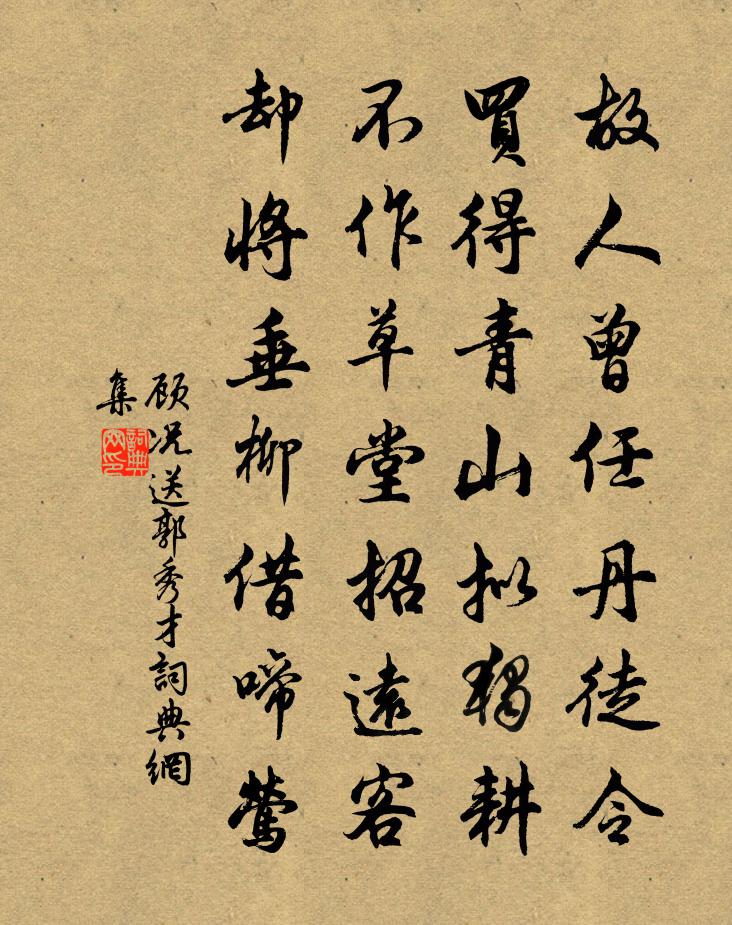 故人曾任丹徒令
買得青山拟獨耕
不作草堂招遠客
却將垂柳借啼鶯
顾况送郭秀才詞典網
集
詞典
网印